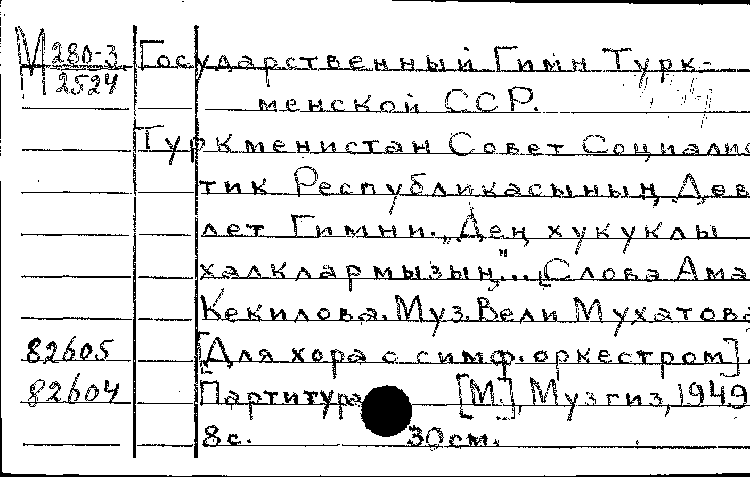 М 280-3 Государственный Гимн Турк-
2524
менской ССР.
Туркменистан Совет Социалис
тик Республикасының Дев
лет Гимни. „Дең хукуклы
халклармызың"... [Слова Ама
Кекилова. Муз. Вели Мухатова
82605 [Для хора с симф. оркестром]
82604 Партитура [М.], Музгиз, 1949
8 с. 30 см.